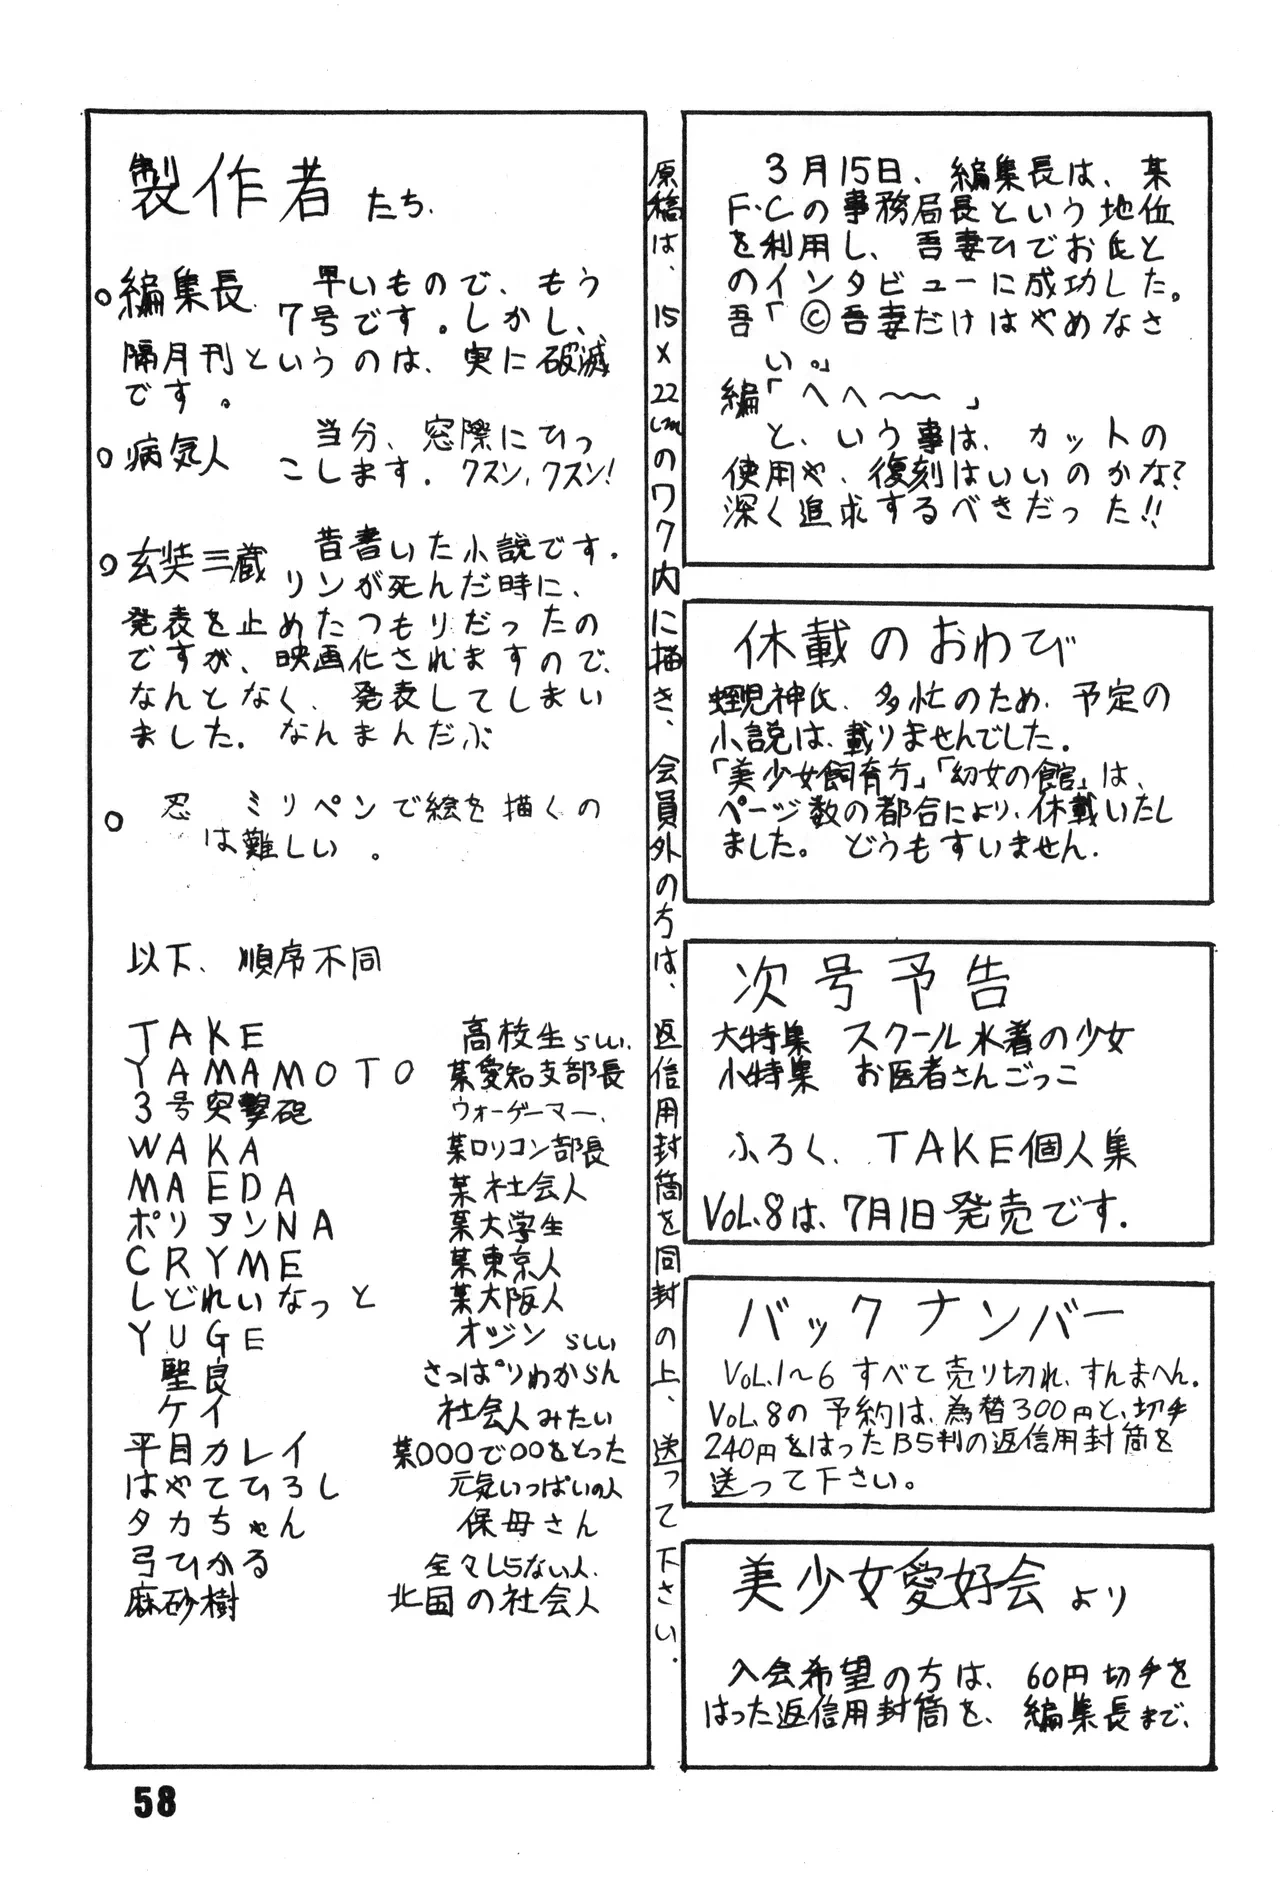 製作者たち.
○編集長 早いもので、もう
7号です。しかし、
隔月刊というのは、実に破滅
です。
○病気人 当分、窓際にひっ
こします. クスン,クスン!
○玄奘三蔵 昔書いた小説です.
リンが死んだ時に、
発表を止めたつもりだったの
ですが、映画化されますので、
なんとなく、発表してしまい
ました. なんまんだぶ
○ 忍 ミリペンで絵を描くの
は難しい。
以下、順序不同
TAKE 高校生らしい.
YAMAMOTO 某愛知支部長
3号突撃砲 ウォーゲーマー.
WAKA 某ロリコン部長
MAEDA 某社会人
ポリアンNA 某大学生
CRYME 某東京人
しどれいなっと 某大阪人
YUGE オジンらしい
聖良 さっぱりわからん
ケイ 社会人みたい
平目カレイ 某○○○で○○をとった
はやてひろし 元気いっぱいの人
タカちゃん 保母さん
弓ひかる 全々しらない人.
麻砂樹 北国の社会人
原稿は、15×22cmのワク内に描き、会員外の方は、返信用封筒を同封の上、送って下さい.
3月15日、編集長は、某
F・Cの事務局長という地位
を利用し、吾妻ひでお氏と
のインタビューに成功した。
吾「©吾妻だけはやめなさ
い。」
編「へへ〜〜」
と、いう事は、カットの
使用や、復刻はいいのかな?
深く追求するべきだった!!
休載のおわび
蛭児神氏、多忙のため、予定の
小説は、載りませんでした.
「美少女飼育方」「幼女の館」は、
ページ数の都合により、休載いたし
ました。どうもすいません.
次号予告
大特集 スクール水着の少女
小特集 お医者さんごっこ
ふろく、TAKE個人集
VOL.8は、7月1日発売です.
バックナンバー
VOL.1〜6 すべて売り切れ、すんまへん.
VOL.8の予約は、為替300円と、切手
240円をはったB5判の返信用封筒を
送って下さい。
美少女愛好会より
入会希望の方は、60円切手を
はった返信用封筒を、編集長まで、
58